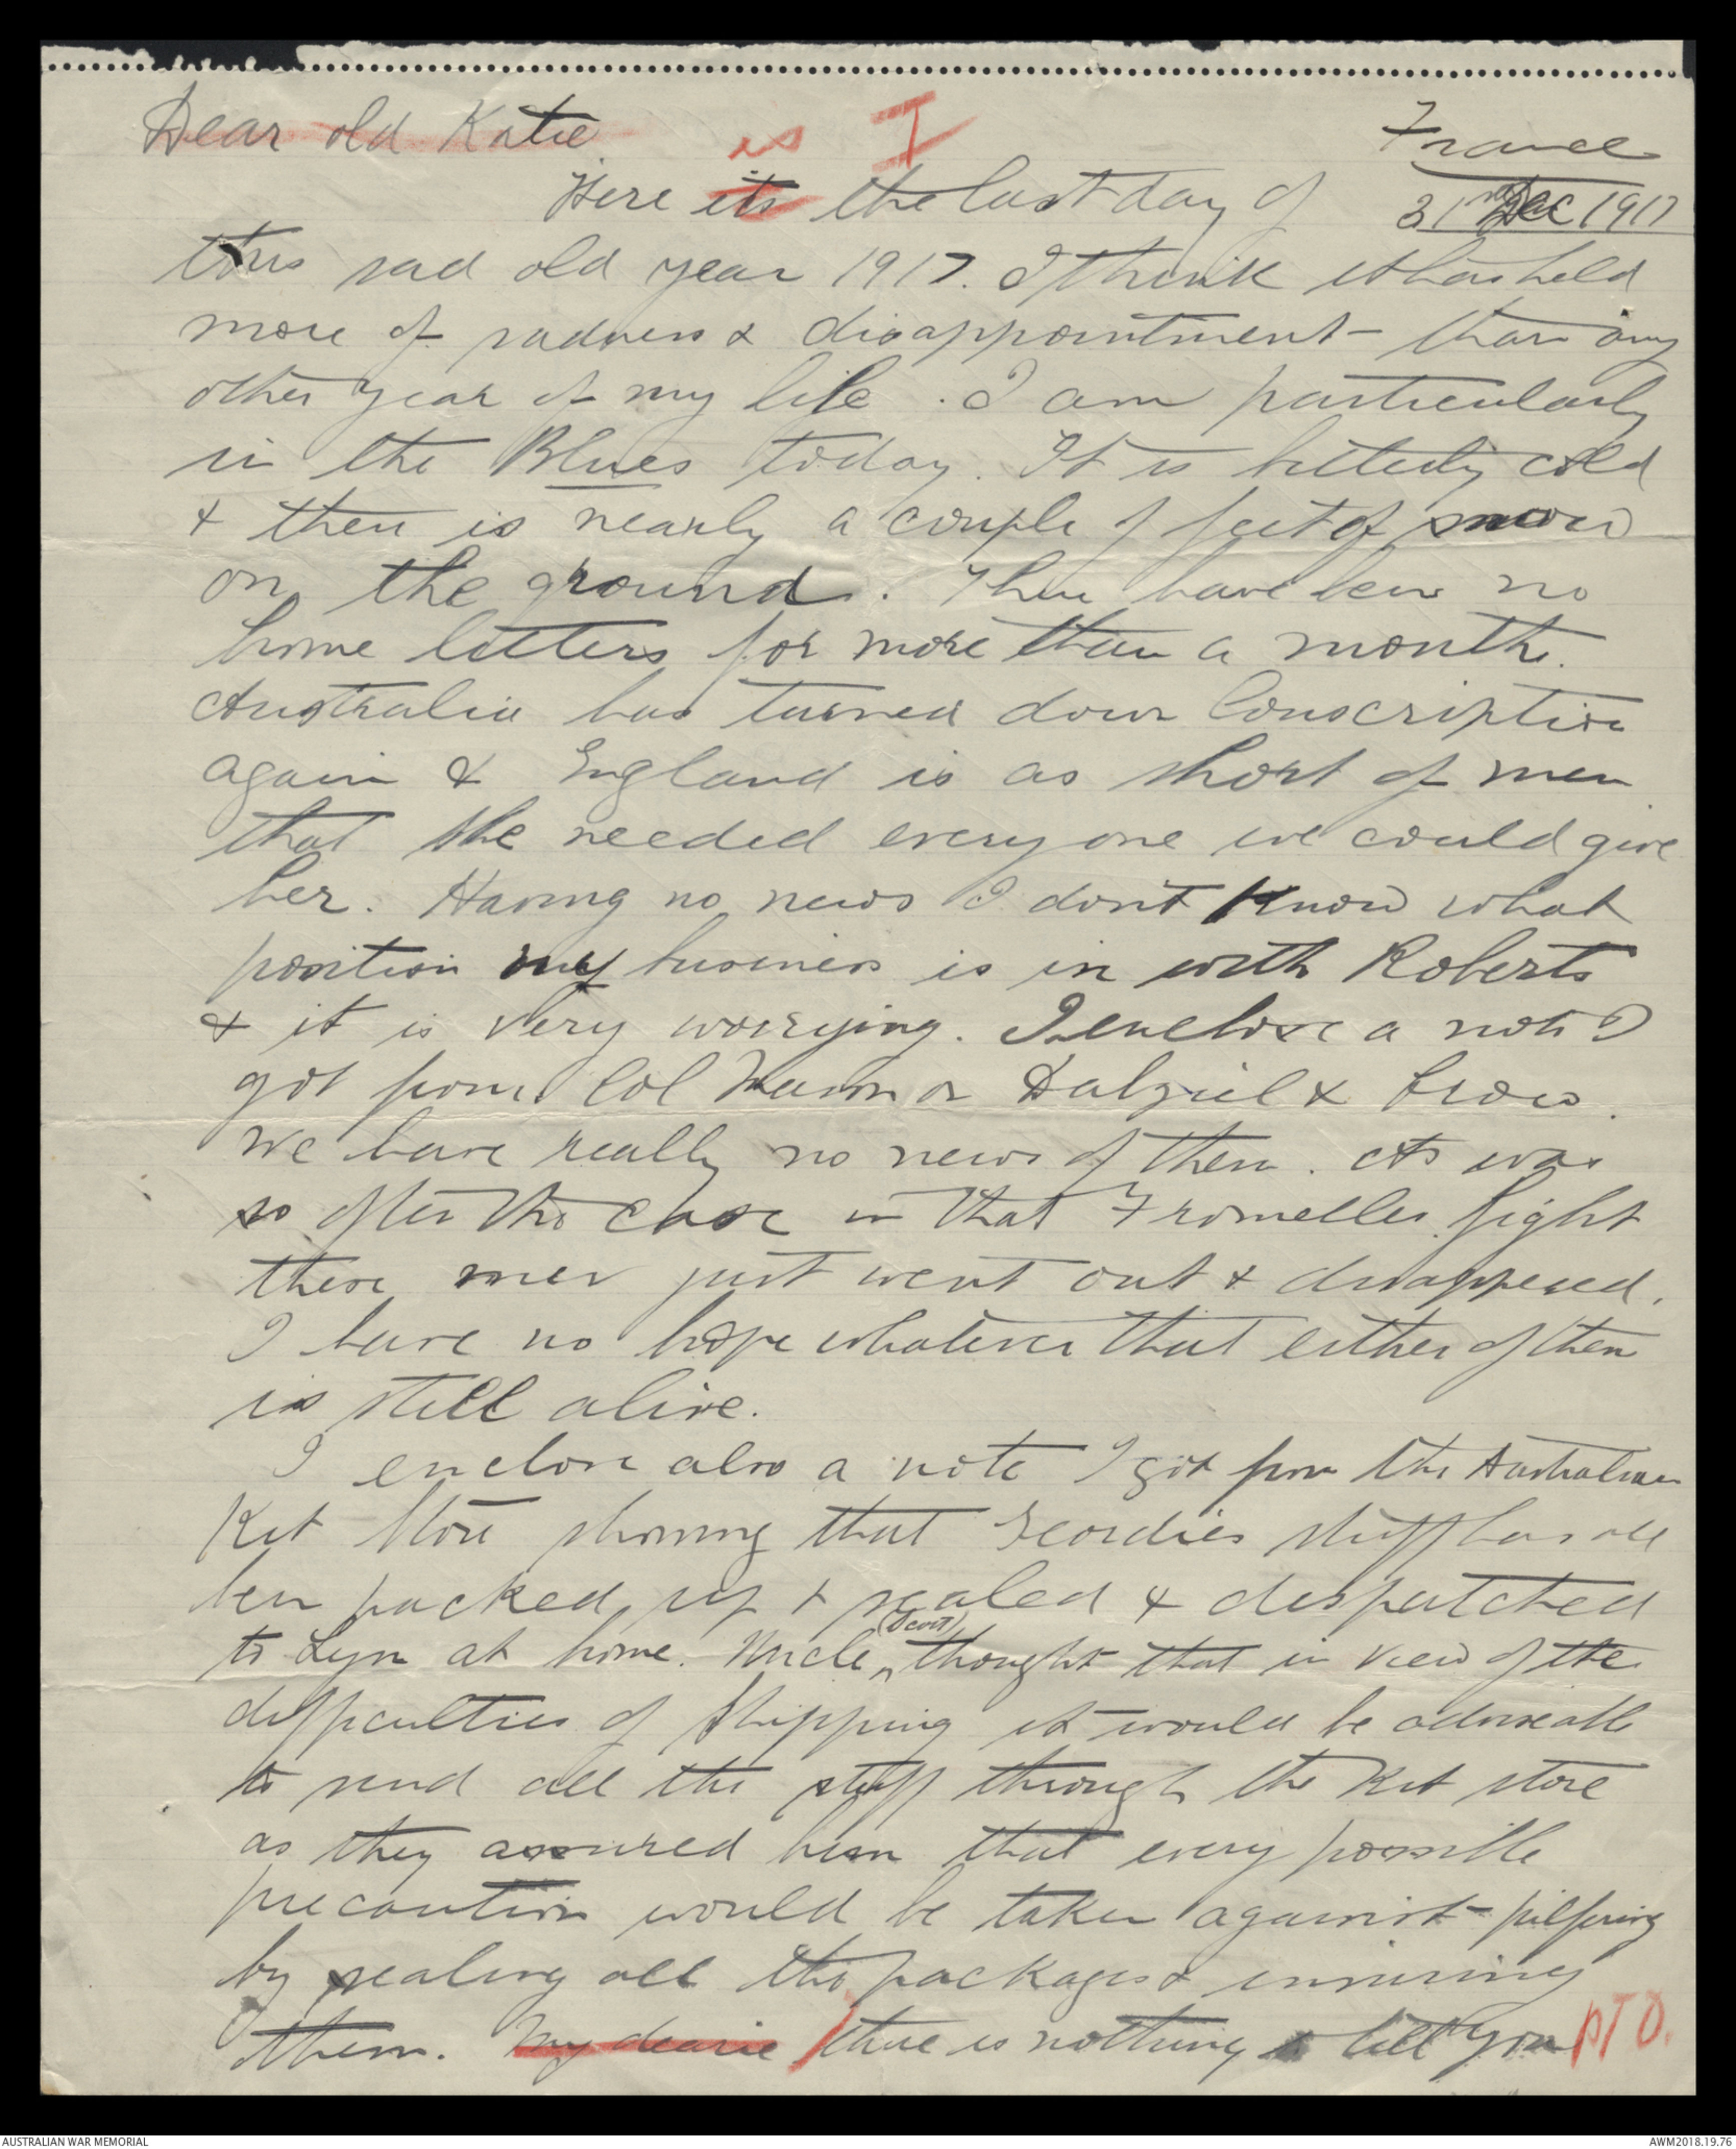 Dear old Katie
is I
France
31st Dec 1917
Here its the last day of
this sad old year 1917. I think it has held
more of sadness & disappointment than any
other year of my life. I am particularly
in the Blues today. It is bitterly cold
& there is nearly a couple of feet of snow
on the ground. There have been no
home letters for more than a month.
Australia has turned down Conscription
again & England is as short of men
that she needed every one we could give
her. Having no news I don't know what
position my business is in with Roberts
& it is very worrying. I enclose a note I
got from Col on Dalziel &
We have really no news of them. As was
so often the case in that Fromelles fight
these men just went out & disappeared.
I have no hope whatever that either of them
is still alive.
I enclose also a note I got from the Australian
Kit Store showing that Geordies stuff has all
been packed up & sealed & despatched
to Lyn at home. Uncle (Scott) thought that in view of the
difficulties of shipping it would be adviseable
to send all the stuff through the Kit store
as they assured him that every possible
precaution would be taken against pilfering
by sealing all the packages & insuring
them. My dearie there is nothing to tell you PTO.
AUSTRALIAN WAR MEMORIAL
AWM2018.19.76